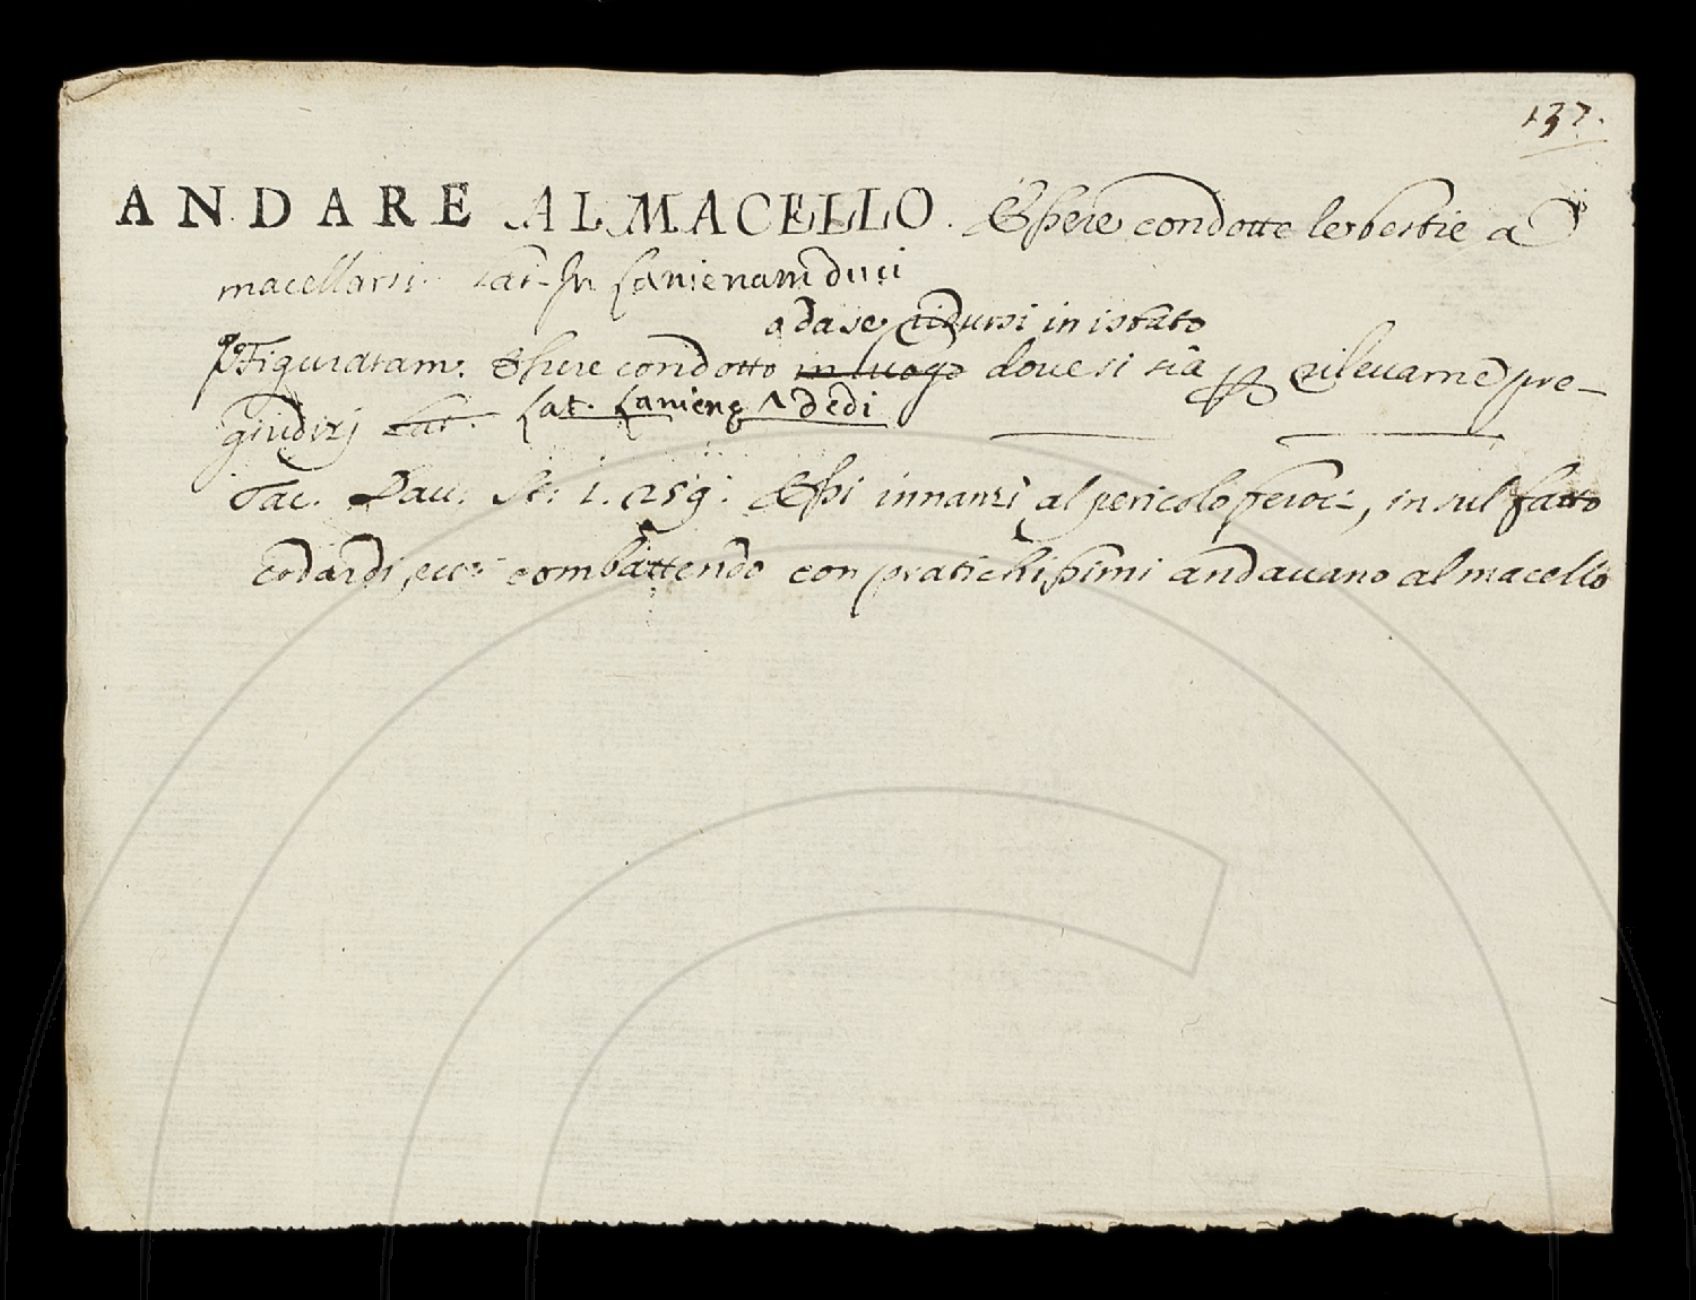 137.
ANDARE AL MACELLO. Essere condotte le bestie a
macellarsi. Lat. In Lanienam duci
ridursi in istato
Figuratam. Essere condotto in luogo dove si stia per rilevarne pre-
giudizj Lat. Lat. dedi
Tac. Dau. St. 1. 259. Essi innanzi al pericolo feroci, in sul fatto
codardi, ecc. combattendo con pratichissimi andauano al macello